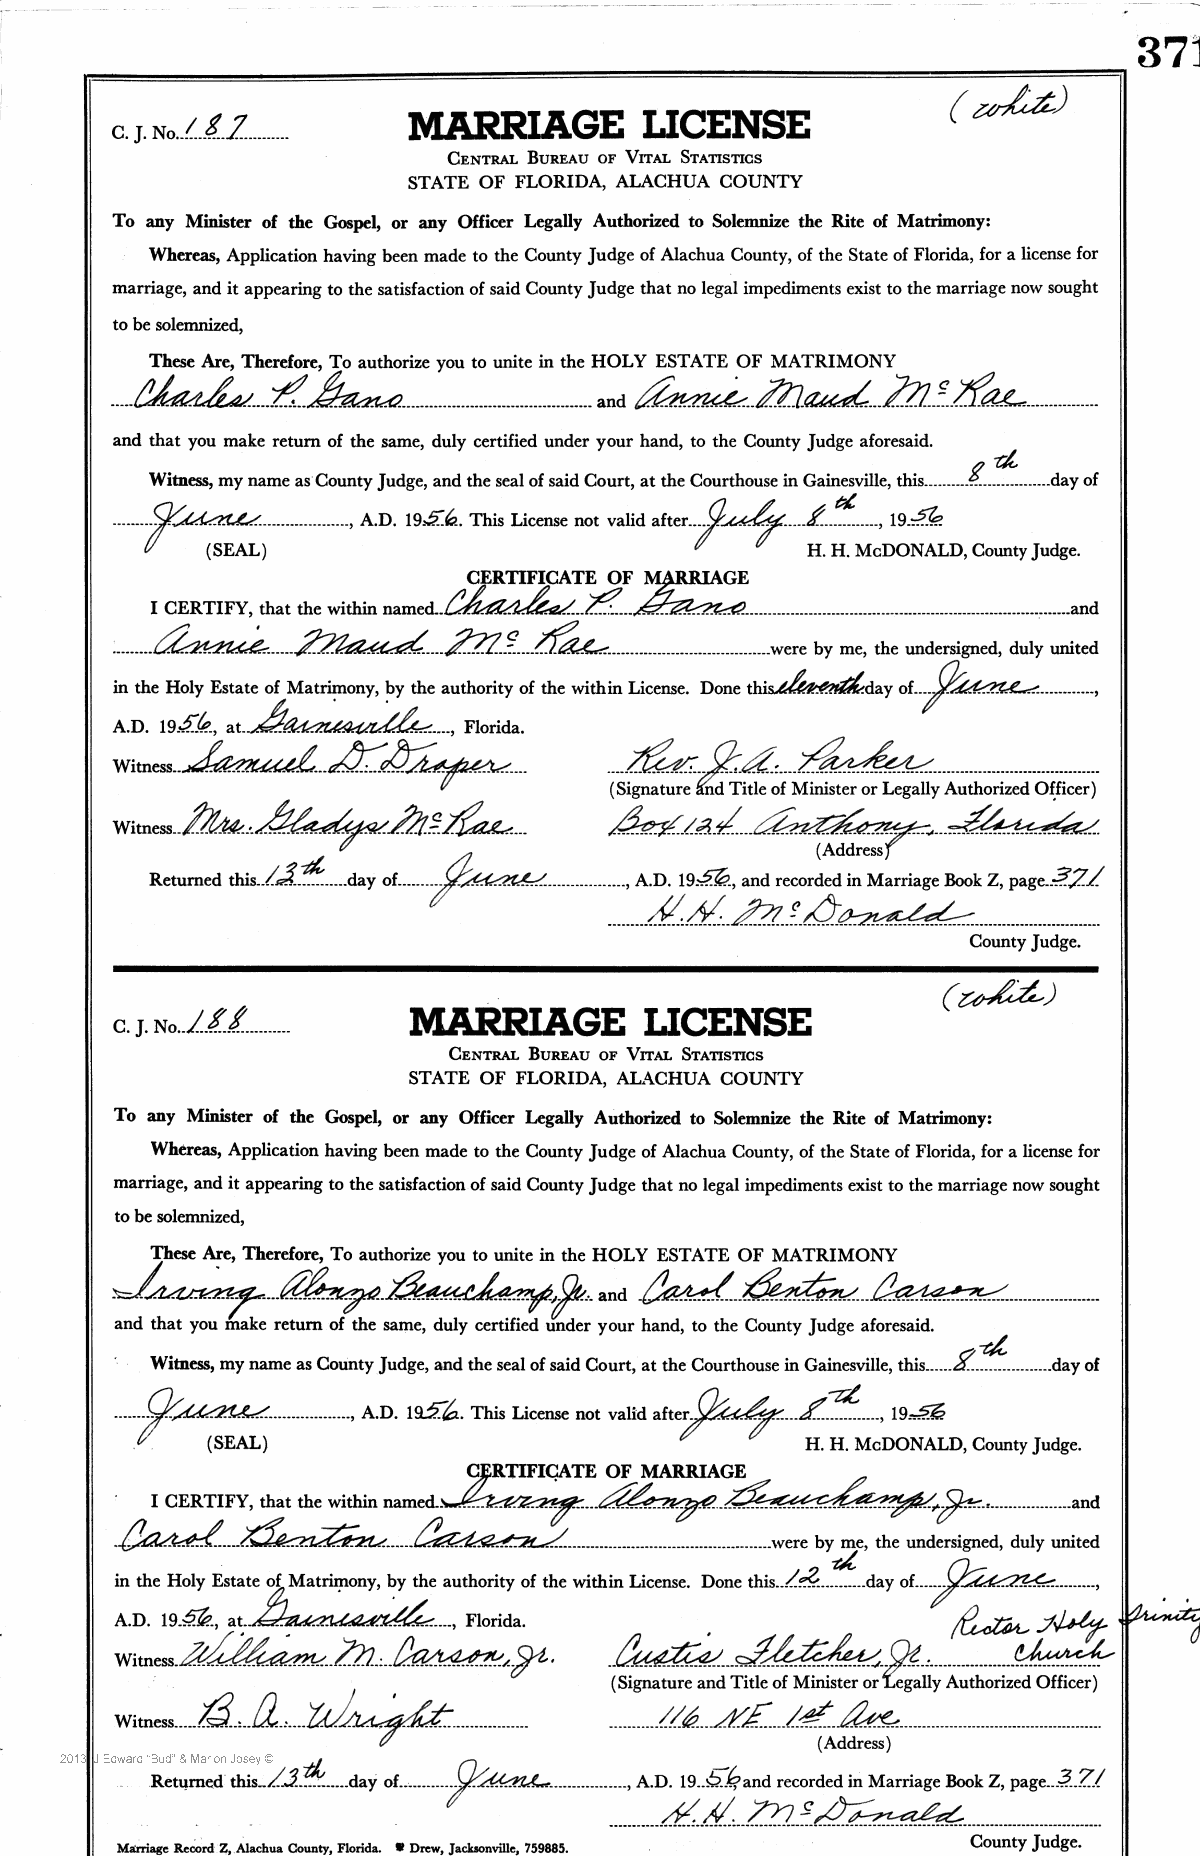 371
(white)
C. J. No. 187
MARRIAGE LICENSE
CENTRAL BUREAU OF VITAL STATISTICS
STATE OF FLORIDA, ALACHUA COUNTY
To any Minister of the Gospel, or any Officer Legally Authorized to Solemnize the Rite of Matrimony:
Whereas, Application having been made to the County Judge of Alachua County, of the State of Florida, for a license for
marriage, and it appearing to the satisfaction of said County Judge that no legal impediments exist to the marriage now sought
to be solemnized,
These Are, Therefore, To authorize you to unite in the HOLY ESTATE OF MATRIMONY
Charles P. Gano and Annie Maud McRae
and that you make return of the same, duly certified under your hand, to the County Judge aforesaid.
Witness, my name as County Judge, and the seal of said Court, at the Courthouse in Gainesville, this 8th day of
June, A.D. 1956. This License not valid after July 8th, 1956
(SEAL) H. H. McDONALD, County Judge.
CERTIFICATE OF MARRIAGE
I CERTIFY, that the within named Charles P. Gano and
Annie Maud McRae were by me, the undersigned, duly united
in the Holy Estate of Matrimony, by the authority of the within License. Done this eleventh day of June,
A.D. 1956, at Gainesville, Florida.
Witness Samuel D. Draper Rev. J. A. Parker
(Signature and Title of Minister or Legally Authorized Officer)
Witness Mrs. Gladys McRae Box 124 Anthony, Florida
(Address)
Returned this 13th day of June, A.D. 1956, and recorded in Marriage Book Z, page 371
H. H. McDonald
County Judge.
(white)
C. J. No. 188
MARRIAGE LICENSE
CENTRAL BUREAU OF VITAL STATISTICS
STATE OF FLORIDA, ALACHUA COUNTY
To any Minister of the Gospel, or any Officer Legally Authorized to Solemnize the Rite of Matrimony:
Whereas, Application having been made to the County Judge of Alachua County, of the State of Florida, for a license for
marriage, and it appearing to the satisfaction of said County Judge that no legal impediments exist to the marriage now sought
to be solemnized,
These Are, Therefore, To authorize you to unite in the HOLY ESTATE OF MATRIMONY
Irving Alonzo Beauchamp, Jr. and Carol Benton Carson
and that you make return of the same, duly certified under your hand, to the County Judge aforesaid.
Witness, my name as County Judge, and the seal of said Court, at the Courthouse in Gainesville, this 8th day of
June, A.D. 1956. This License not valid after July 8th, 1956
(SEAL) H. H. McDONALD, County Judge.
CERTIFICATE OF MARRIAGE
I CERTIFY, that the within named Irving Alonzo Beauchamp, Jr. and
Carol Benton Carson were by me, the undersigned, duly united
in the Holy Estate of Matrimony, by the authority of the within License. Done this 12th day of June,
A.D. 1956, at Gainesville, Florida.
Rector Holy Trinity
Church
Witness William M. Carson, Jr. Custis Fletcher, Jr.
(Signature and Title of Minister or Legally Authorized Officer)
Witness B. A. Wright 116 NE 1st Ave
(Address)
2013 J Edward "Bud" & Marion Josey ©
Returned this 13th day of June, A.D. 1956, and recorded in Marriage Book Z, page 371
H. H. McDonald
County Judge.
Marriage Record Z, Alachua County, Florida. Drew, Jacksonville, 759885.